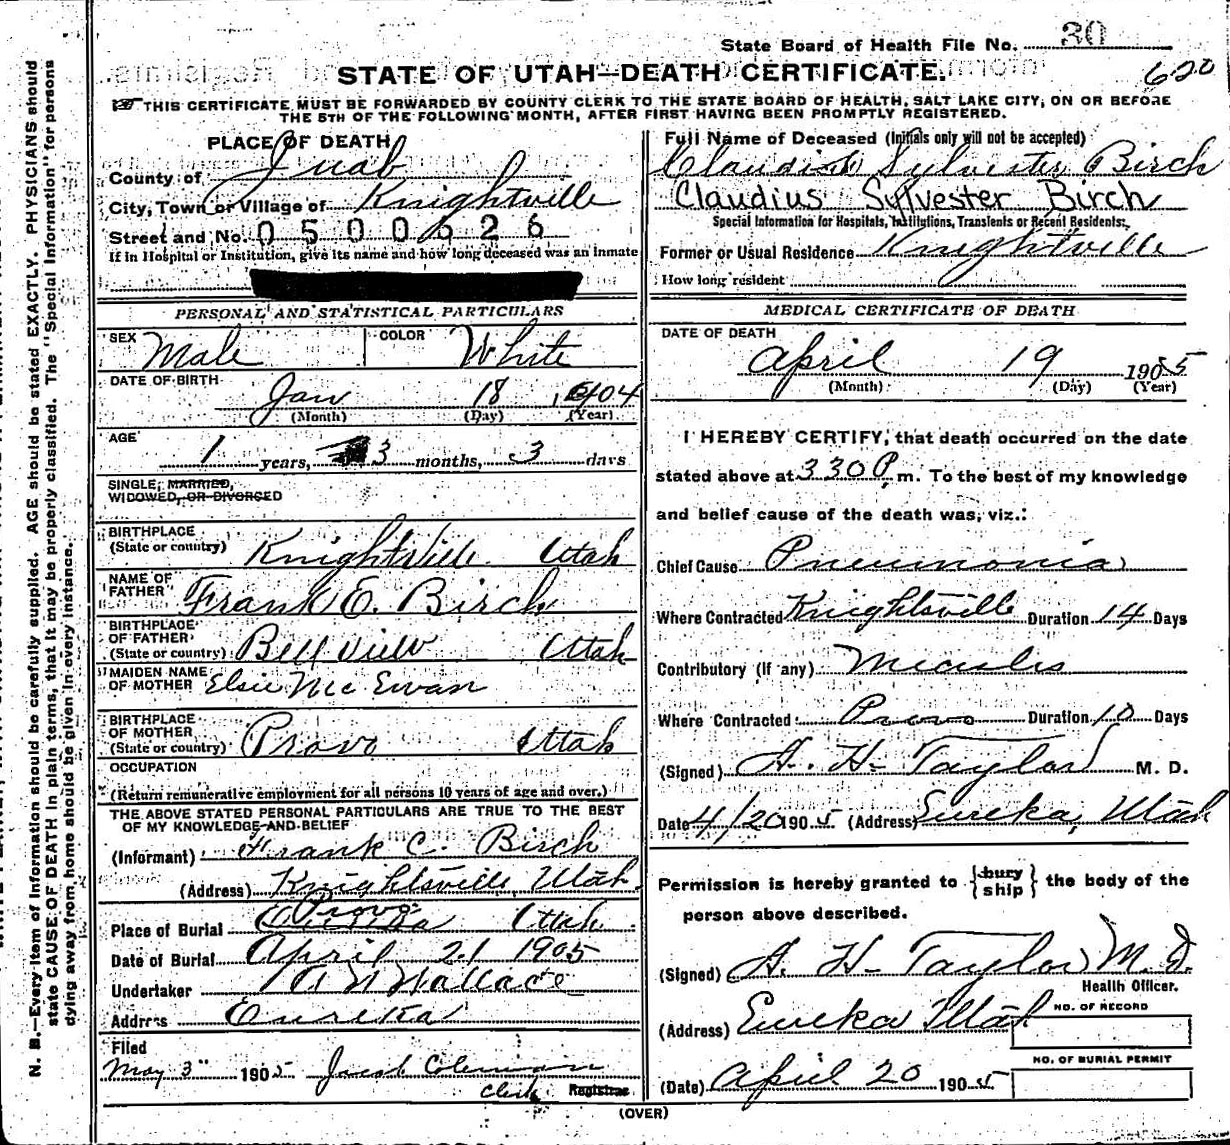 State Board of Health File No. 30
STATE OF UTAH—DEATH CERTIFICATE.
620
THIS CERTIFICATE MUST BE FORWARDED BY COUNTY CLERK TO THE STATE BOARD OF HEALTH, SALT LAKE CITY, ON OR BEFORE
THE 5TH OF THE FOLLOWING MONTH, AFTER FIRST HAVING BEEN PROMPTLY REGISTERED.
PLACE OF DEATH
County of Juab
City, Town or Village of Knightville
Street and No. 0500626
If in Hospital or Institution, give its name and how long deceased was an inmate
PERSONAL AND STATISTICAL PARTICULARS
SEX Male COLOR White
DATE OF BIRTH
Jan 18 1904
(Month) (Day) (Year)
AGE
1 years, 3 months, 3 days
SINGLE, MARRIED,
WIDOWED, OR DIVORCED
BIRTHPLACE
(State or country) Knightville Utah
NAME OF
FATHER Frank E. Birch
BIRTHPLACE
OF FATHER
(State or country) Bell View Utah
MAIDEN NAME
OF MOTHER Elsie McEwan
BIRTHPLACE
OF MOTHER
(State or country) Provo Utah
OCCUPATION
(Return remunerative employment for all persons 10 years of age and over.)
THE ABOVE STATED PERSONAL PARTICULARS ARE TRUE TO THE BEST
OF MY KNOWLEDGE AND BELIEF
(Informant) Frank C. Birch
(Address) Knightsville, Utah.
Provo
Place of Burial Eureka Utah
Date of Burial April 21 1905
Undertaker Wallace
Address Eureka
Filed
May 3" 1905 Jacob Coleman
Clerk Registrar
Full Name of Deceased (Initials only will not be accepted)
Claudius Sylvester Birch
Claudius Sylvester Birch
Special Information for Hospitals, Institutions, Transients or Recent Residents:
Former or Usual Residence Knightville
How long resident
MEDICAL CERTIFICATE OF DEATH
DATE OF DEATH
April 19 1905
(Month) (Day) (Year)
I HEREBY CERTIFY, that death occurred on the date
stated above at 330 P. m. To the best of my knowledge
and belief cause of the death was, viz.:
Chief Cause Pneumonia
Where Contracted Knightsville Duration 14 Days
Contributory (If any) Measles
Where Contracted Provo Duration 10 Days
(Signed) A. H. Taylor M. D.
Date 4/20 1905 (Address) Eureka, Utah
Permission is hereby granted to {bury
ship} the body of the
person above described.
(Signed) A. H. Taylor M.D.
Health Officer.
(Address) Eureka Utah
NO. OF RECORD
NO. OF BURIAL PERMIT
(Date) April 20 1905
(OVER)
N. B.—Every item of information should be carefully supplied. AGE should be stated EXACTLY. PHYSICIANS should
state CAUSE OF DEATH in plain terms, that it may be properly classified. The "Special Information" for persons
dying away from home should be given in every instance.